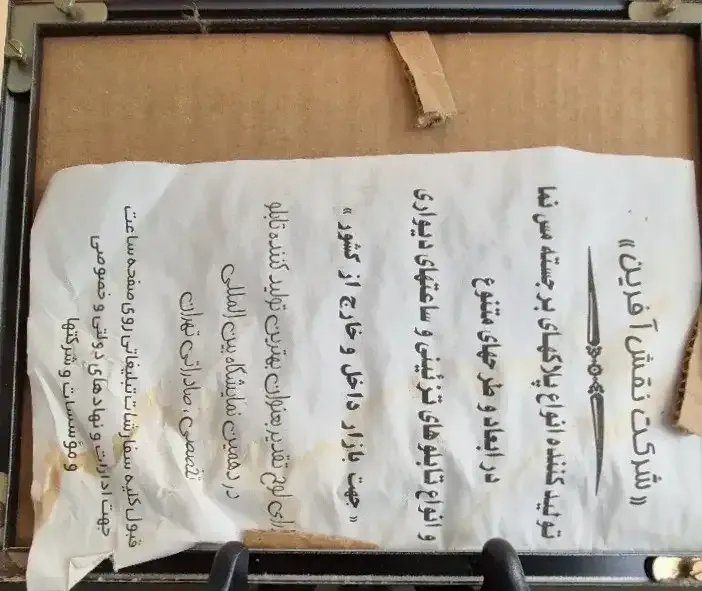 «شرکت نقش آفرین»
تولید کننده انواع پلاکهای برجسته مس نما
در ابعاد و طرحهای متنوع
و انواع تابلوهای تزئینی و ساعتهای دیواری
« جهت بازار داخل و خارج از کشور »
رای لوح تقدیر بعنوان بهترین تولید کننده تابلو
در دهمین نمایشگاه بین المللی
تخصصی، صادراتی تهران
قبول کلیه سفارشات تبلیغاتی روی صفحه ساعت
جهت ادارات و نهادهای دولتی و خصوصی
و مؤسسات و شرکتها